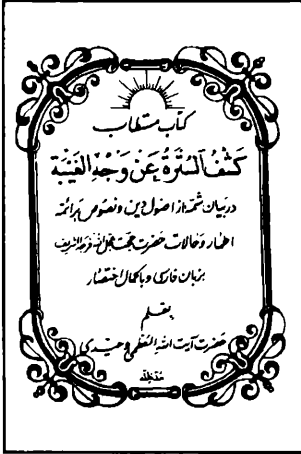 کتاب مستطاب
کَشْفُ السُّتْرَةِ عَنْ وَجْهِ الْغَیْبَةِ
در بیان شمه‌ از اصول دین و نصوص بر ائمه
اطهار و حالات حضرت حجت عجل الله فرجه الشریف
بزبان فارسی و باکمال اختصار
بقلم
حضرت آیت الله العظمی وحیدی
مدظله